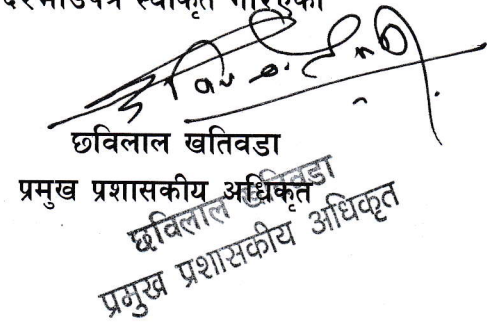 दरभाउपत्र स्वीकृत गरिएको
छविलाल खतिवडा
प्रमुख प्रशासकीय अधिकृत
छविलाल खतिवडा
प्रमुख प्रशासकीय अधिकृत